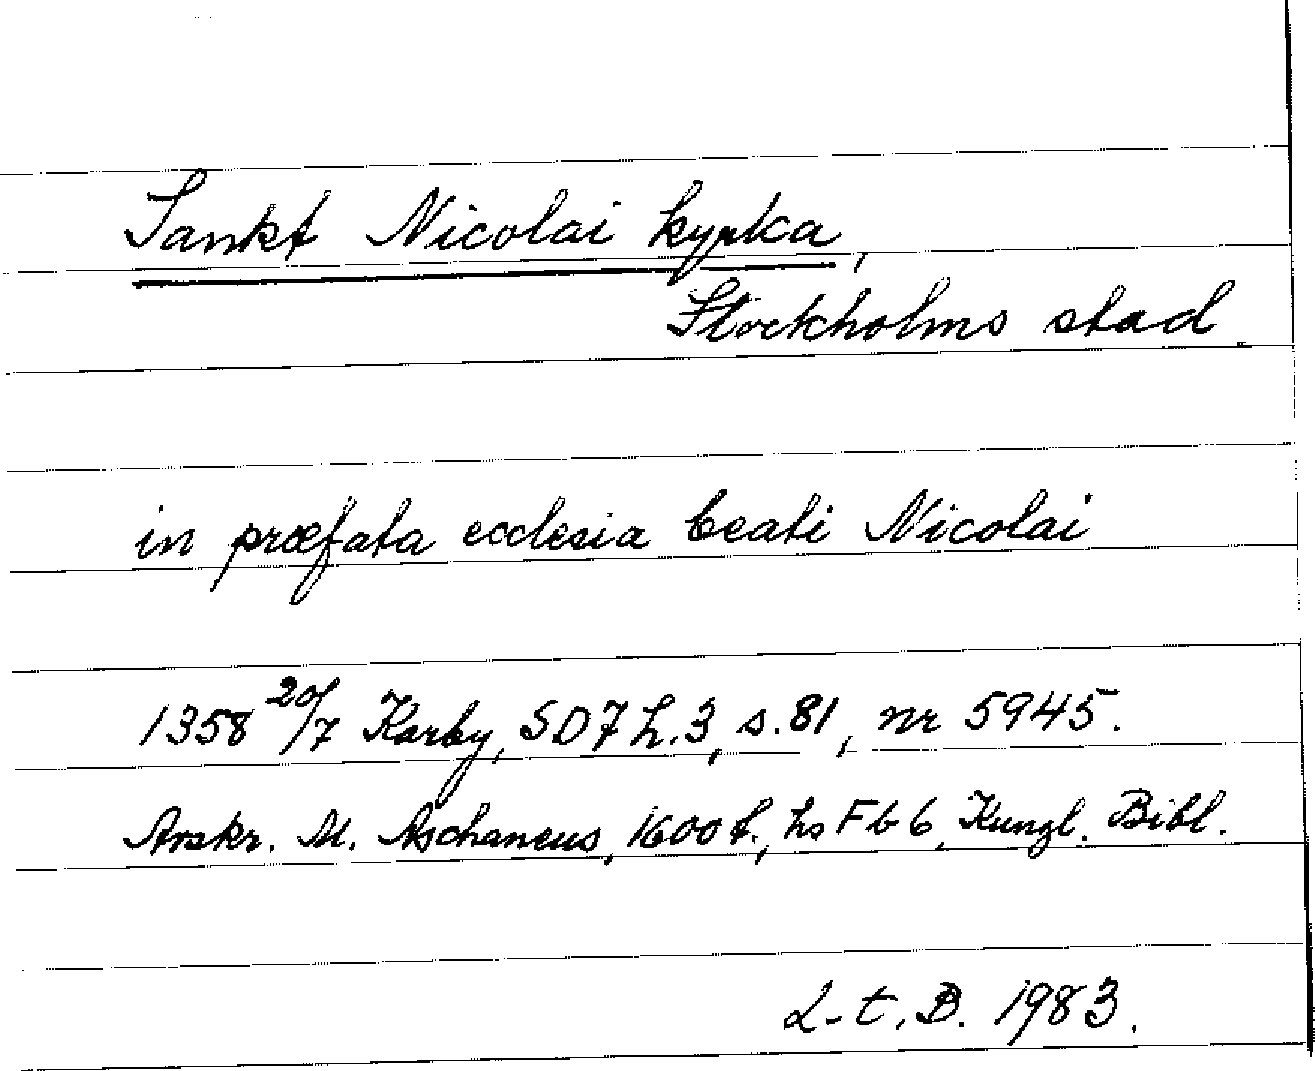 Sankt Nicolai kyrka,
Stockholms stad
in præfata ecclesia beati Nicolai
1358 20/7 Karby, SD7 h.3, s.81, nr 5945.
Avskr. M. Aschaneus, 1600 t., hs F b 6, Kungl. Bibl.
L-t, B. 1983.